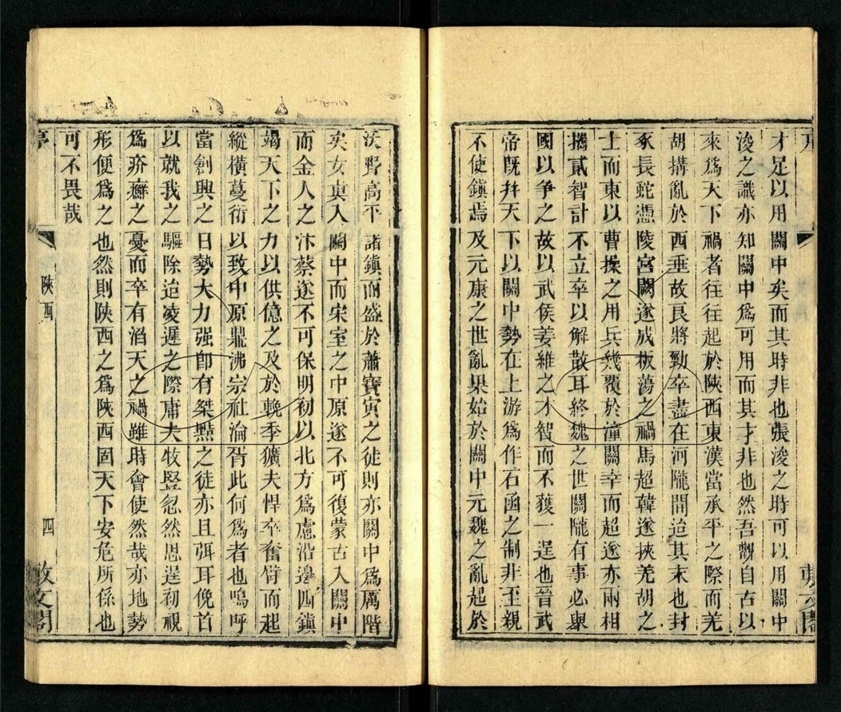 才足以用關中矣而其時非也張浚之時可以用關中
浚之識亦知關中爲可用而其才非也然吾觀自古以
來爲天下禍者往往起於陝西東漢當承平之際而羌
胡搆亂於西垂故良將勁卒盡在河隴間迨其末也封
豕長蛇憑陵宮闕遂成板蕩之禍馬超韓遂挾羌胡之
士而東以曹操之用兵幾覆於潼關幸而超遂亦兩相
攜貳智計不立卒以解散耳終魏之世關隴有事必東
國以爭之故以武侯姜維之才智而不獲一逞也晉武
帝既幷天下以關中勢在上游爲作石函之制非至親
不使鎮焉及元康之世亂果始於關中元魏之亂起於
沃野高平諸鎮而盛於蕭寶寅之徒則亦關中爲厲階
矣女真入關中而宋室之中原遂不可復蒙古入關中
而金人之汴蔡遂不可保明初以北方爲慮沿邊四鎮
竭天下之力以供億之及於晚季獷夫悍卒奮臂而起
縱橫蔓衍以致中原鼎沸宗社淪胥此何爲者也嗚呼
當創興之日勢大力强卽有桀黠之徒亦且弭耳俛首
以就我之驅除迨凌遲之際庸夫牧豎忽然思逞初視
爲疥癬之憂而卒有滔天之禍雖時會使然哉亦地勢
形便爲之也然則陝西之爲陝西固天下安危所係也
可不畏哉
陝西
四
敷文閣